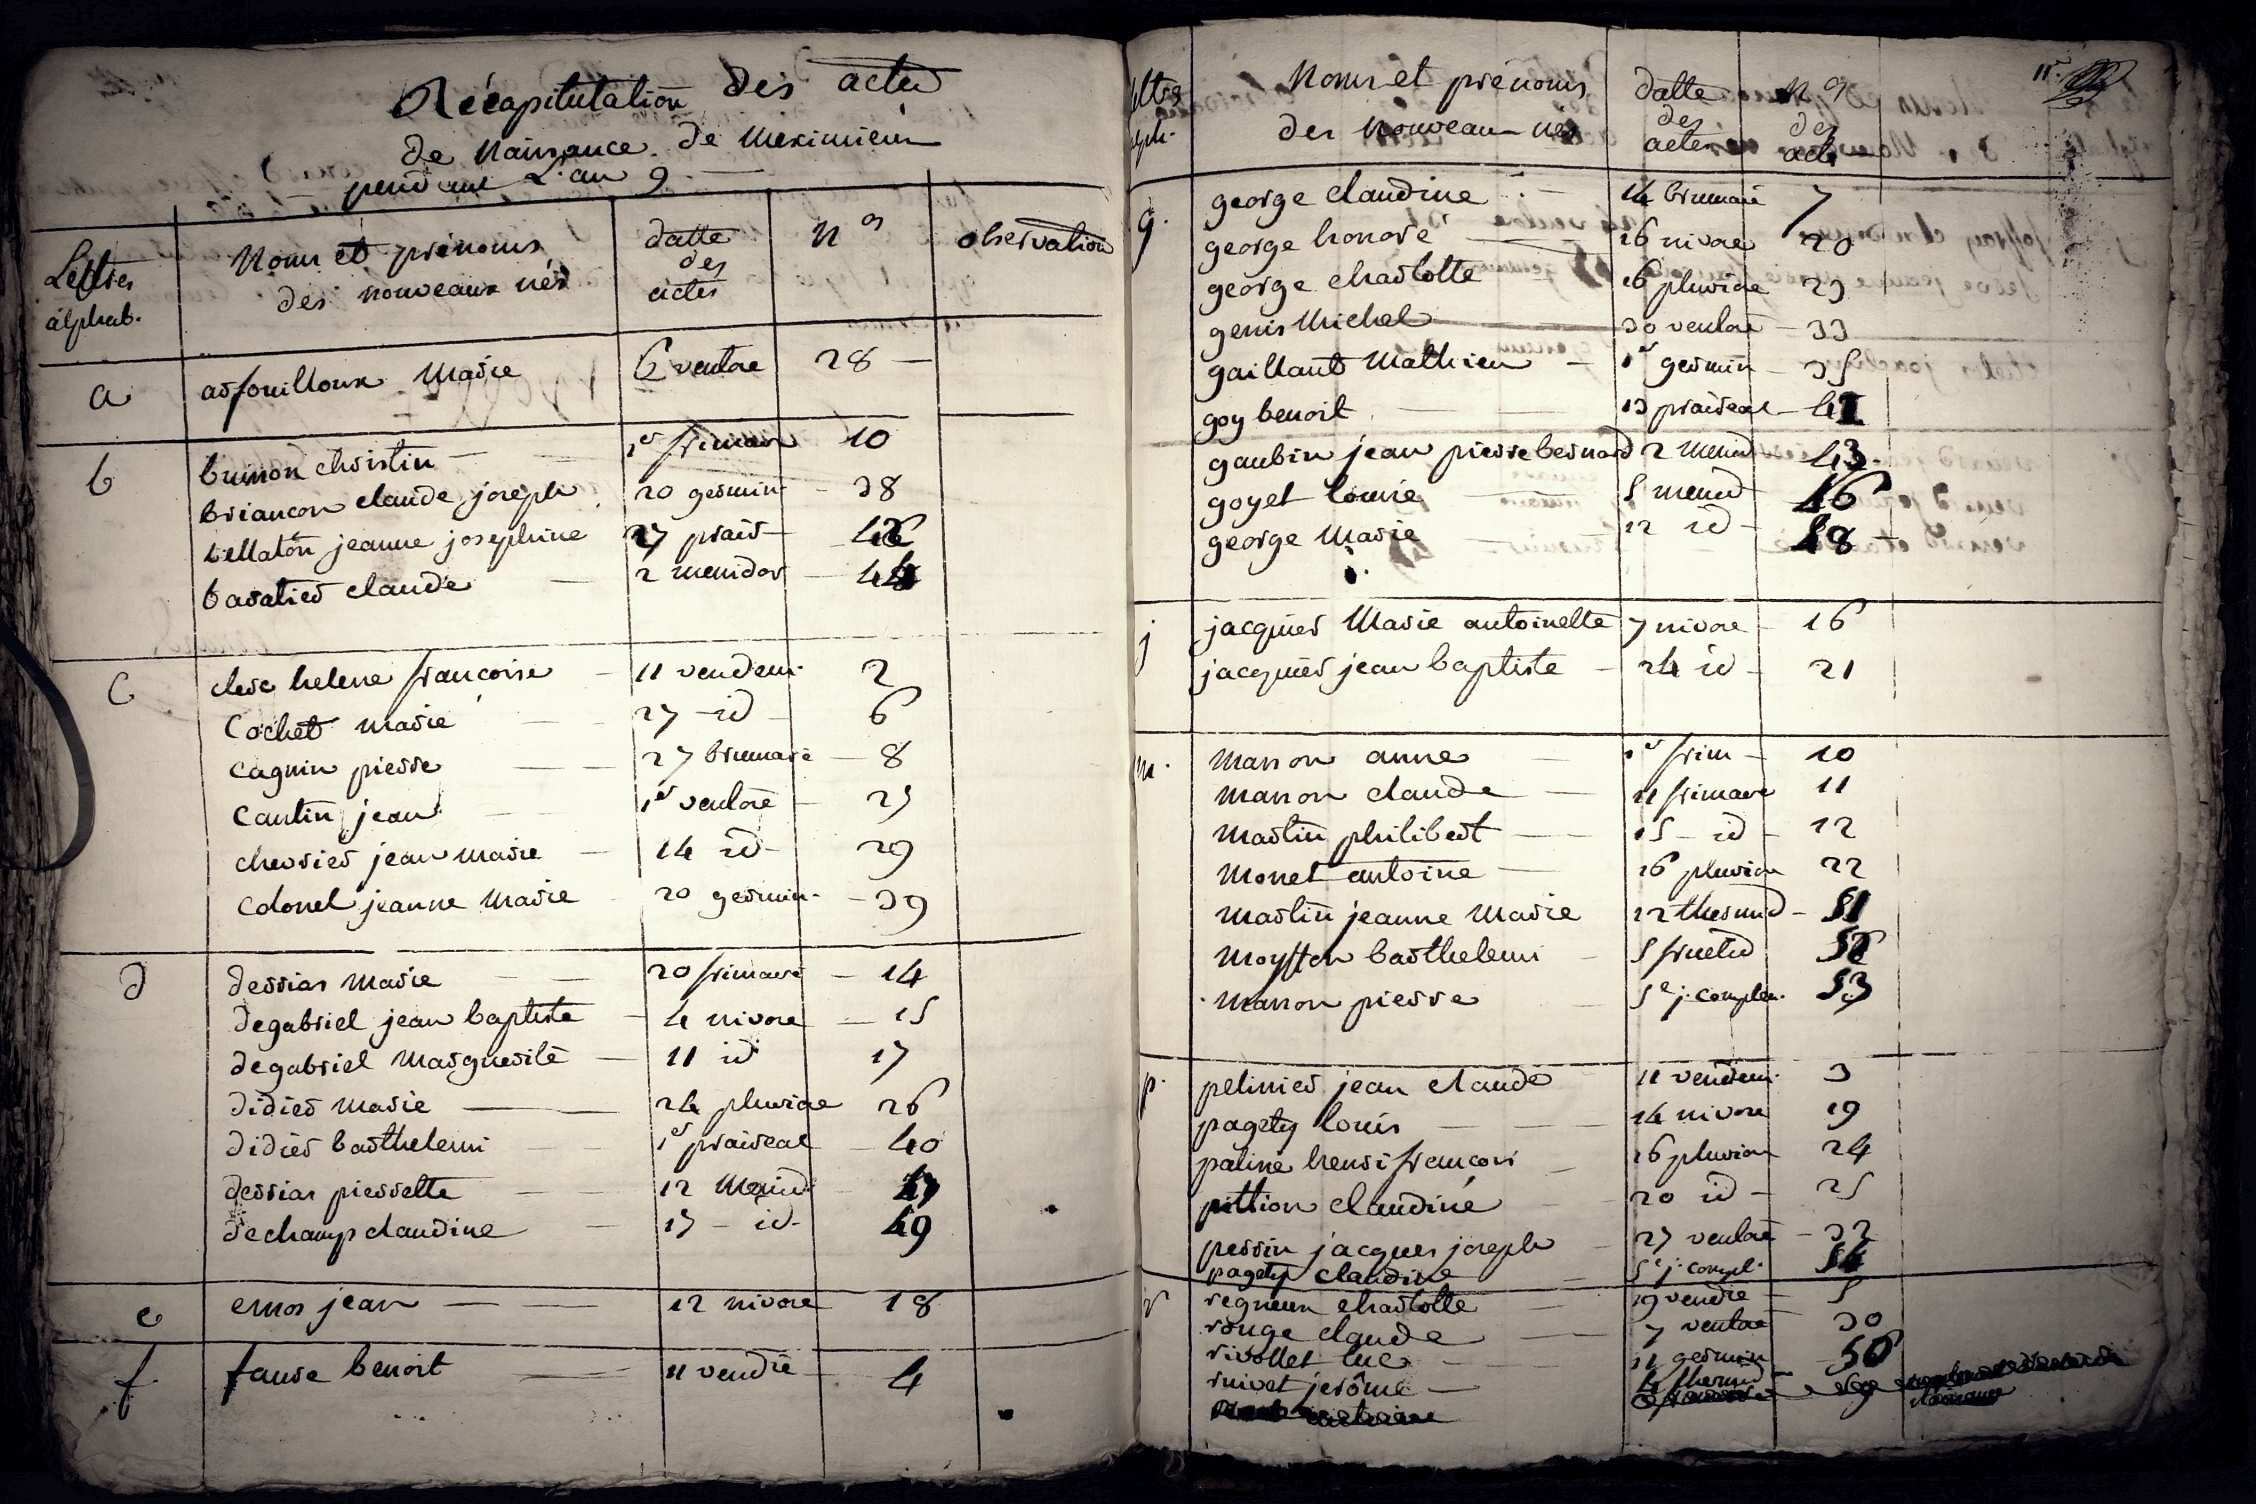 Récapitulation des actes
de Naissance de Meximieux
pendant L'an 9
Lettres alphab.
Noms et prénoms des nouveaux nés
datte des actes
Nos
observation
a
arfouilloux Marie 6 ventose 28
b
buisson christin 1er frimaire 10
briancon claude joseph 20 germin. 38
bellaton jeanne josephine 27 prair 42
baratier claude 2 messidor 44
c
clerc helene francoise 11 vendem. 2
Cochet marie 27 id 6
cagnin pierre 27 brumaire 8
cantin jean 1er ventose 27
chervier jean marie 14 id 29
colonel jeanne marie 20 germin. 39
d
dessiar marie 20 frimaire 14
degabriel jean baptiste 4 nivose 15
degabriel marguerite 11 id 17
didier marie 24 pluviose 26
didier barthelemi 1er prairial 40
dessiar pierrette 12 Messid 47
dechamp claudine 17 id. 49
e
emor jean 12 nivose 18
f
faure benoit 11 vendre 4
lttre alph.
Noms et prénoms des Nouveau nés
datte des actes
Nos des acts
15.
g.
george claudine 14 brumaire 7
george honoré 26 nivose 20
george charlotte 16 pluviose 23
genis Michel 30 ventose 33
gaillard Mathieu 1er germin 35
goy benoit 13 prairial 41
gaubin jean pierre bernard 2 messid 43
goyet louise 5 messid 46
george Marie 12 id 48
j
jacquier Marie antoinette 7 nivose 16
jacquier jean baptiste 24 id 21
m.
masson anne 1er frim 10
masson claude 11 frimaire 11
martin philibert 15 id 12
monet antoine 16 pluviose 22
martin jeanne Marie 12 thermid 51
moyston barthelemi 5 fructid 52
masson pierre 5e j. complem. 53
p.
pelinier jean claude 11 vendem. 3
pagety louis 14 nivose 19
paline henri francois 16 pluviose 24
pittion claudine 20 id 25
perrin jacques joseph 27 ventose 32
pagety claudine 5e j. compl. 54
r
regneux charlotte 19 vendre 5
rouge claude 7 ventose 30
rivollet luc 11 germin
ruivet jerôme 4 thermid 50